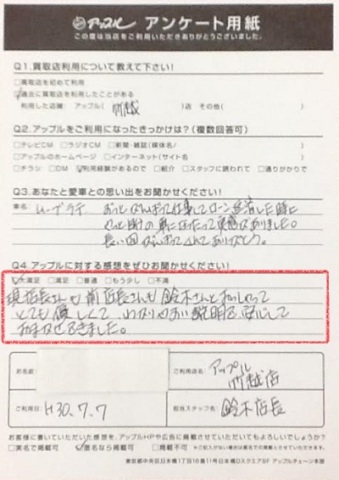 アップル アンケート用紙
この度は当店をご利用いただきありがとうございました。
Q1.買取店利用について教えて下さい!
□買取店を初めて利用
☑過去に買取店を利用したことがある
利用した店舗: アップル( 川越 )店 その他( )
Q2.アップルをご利用になったきっかけは?(複数回答可)
□テレビCM □ラジオCM □新聞・雑誌(媒体名/ )
□アップルのホームページ □インターネット(サイト名 )
□チラシ □DM ☑利用経験があるので □紹介 □スタッフに誘われて □通りがかりで
Q3.あなたと愛車との思い出をお聞かせください!
車名 ムーブラテ
ローン 返済した時に
長い間 ありがとう。
Q4.アップルに対する感想をぜひお聞かせください!
☑大満足 □満足 □普通 □もう少し □不満
現店長さんも前店長さんも鈴木さん
とても優しくて、わかりやすい説明で、安心して
おまかせできました。
お名前
ご利用店名 アップル
川越店
ご利用日 H30.7.7
担当スタッフ名 鈴木店長
お客様に書いていただいた感想を、アップルHPや広告に掲載させていただいてもよろしいでしょうか?
□実名で掲載可 ☑匿名なら掲載可 □掲載不可
東京都中央区日本橋1丁目10番11号日本橋DスクエアBF アップルチェーン本部